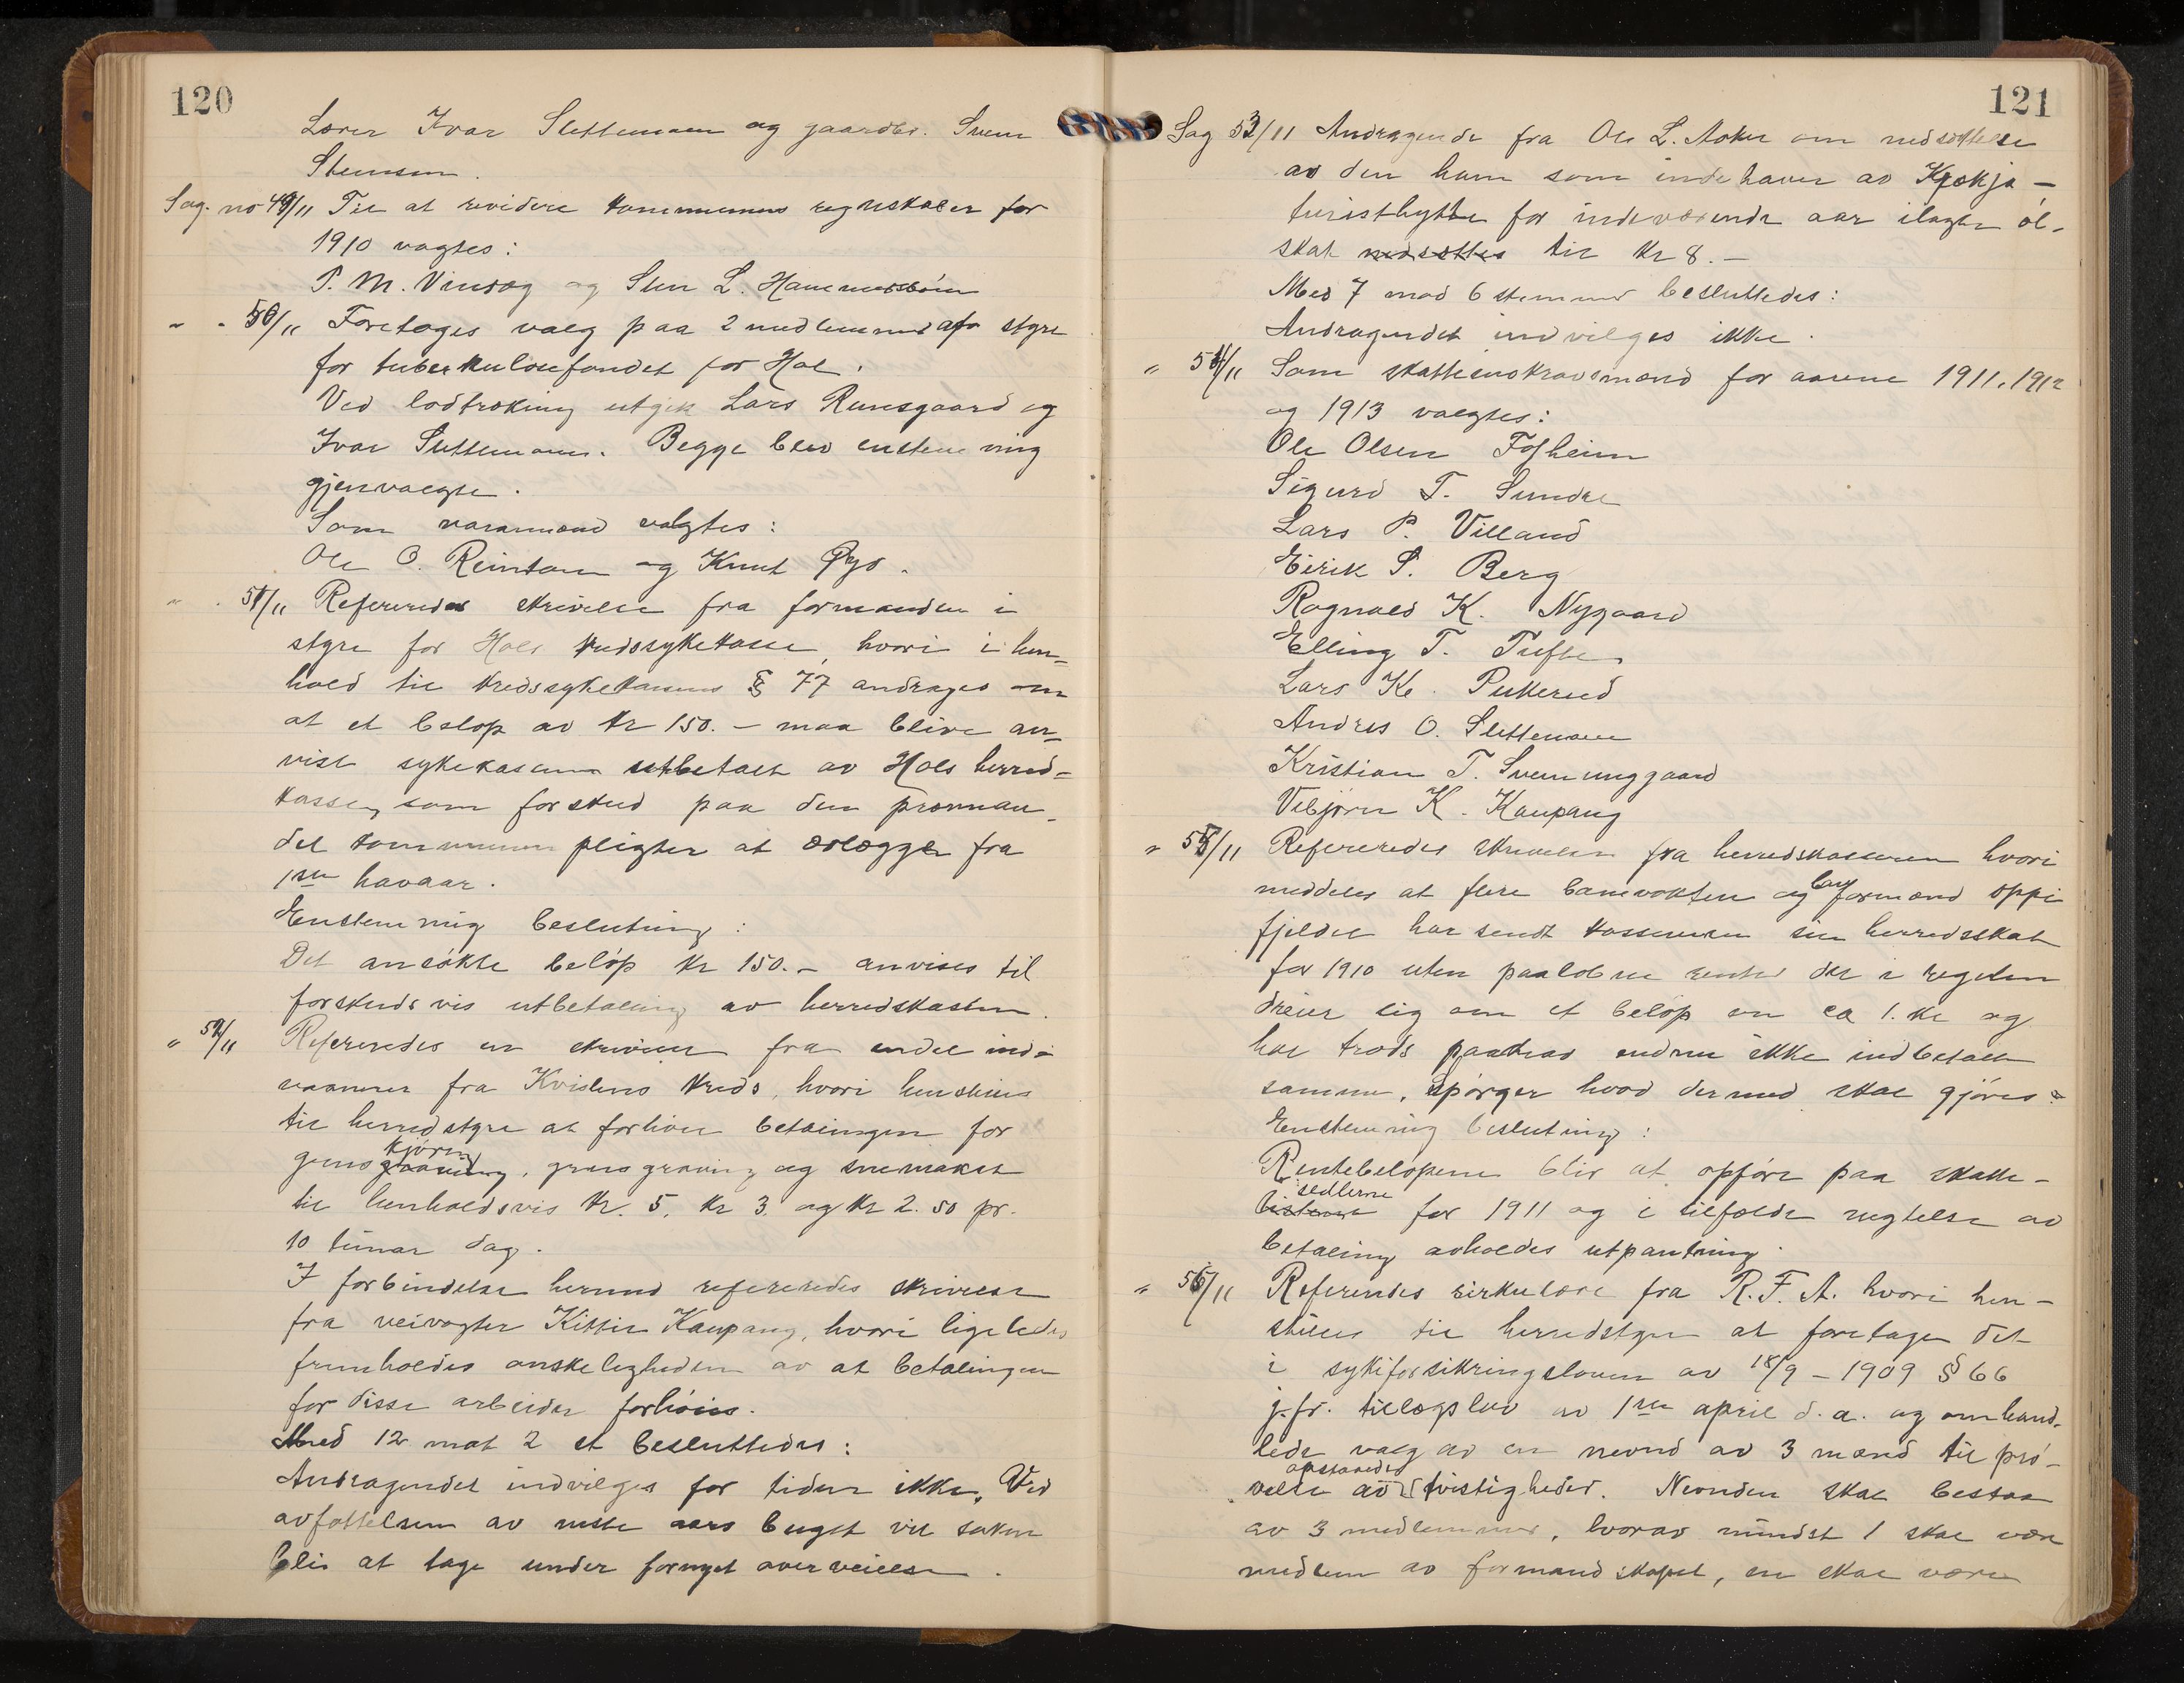 120
Lærer Ivar Slettemoen og gaardbr. Svein
Steinsen.
Sag. no 49/11 Til at revidere kommunens regnskaber for
1910 valgtes:
P. M. Vindeg og Sten L. Hammersbøen
" " 50/11 Foretages valg paa 2 medlemmer af styre
for tuberkulosefondet for Hol.
Ved lodtrækning utgik Lars Runsgaard og
Ivar Slettemoen. Begge blev enstemmig
gjenvalgte.
Som varamænd valgtes:
Ole O. Reinton og Knut Øyo.
" . 51/11 Refereredes skrivelse fra formanden i
styre for Hols kredssykekasse, hvori i hen-
hold til kredssykekassens § 77 andrages om
at et beløp av kr 150.- maa blive an-
vist sykekassens utbetalt av Hols herred-
kasse, som forskud paa den præmiean-
del kommunen pligter at erlægge fra
1ste halvaar.
Enstemmig beslutning:
Det ansøkte beløp kr 150.- anvises til
forskudsvis utbetaling av herredskassen.
" 52/11 Refereredes en skrivelse fra endel ind-
vaanere fra Kvislens kreds, hvori henstilles
til herredstyre at forhøie betalingen for
kjøring
grusgraving, grusgraving og snemaket
til henholdsvis kr. 5, kr 3 og kr 2.50 pr.
10 timar dag.
I forbindelse hermed refereredes skrivelse
fra veivogter Kittil Kaupang, hvori ligeledes
fremholdes ønskeligheden av at betalingen
for disse arbeider forhøies.
Med 12 mot 2 st besluttedes:
Andragendet indvilges for tiden ikke. Ved
avfattelsen av neste aars buget vil saken
bli at tage under fornyet overveielse.
121
Sag 53/11 Andragende fra Ole L. Aaker om nedsættelse
av den ham som indehaver av Kjækja-
turisthytte for indeværende aar ilagte øl-
skat nedsættes til kr 8.-
Med 7 mod 6 stemmer besluttedes:
Andragendet indvilges ikke.
" 54/11 Som skatteinkrævsmænd for aarene 1911, 1912
og 1913 valgtes:
Ole Olsen Fosheim
Sigurd T. Sundre
Lars P. Villand
Eirik S. Berg
Ragnvald K. Nygaard
Elling T. Tufte
Lars K. Pukerud
Andres O. Slettemoen
Kristian T. Sveinunggaard
Vebjørn K. Kaupang
" 55/11 Refereredes skrivelse fra herredskassereren hvori
meddeles at flere banevokter og formænd oppi
fjeldet har sendt kassereren sin herredsskat
for 1910 uten paaløbne renter der i regelen
dreier sig om et beløp av ca 1. kr og
har trods paakrav endnu ikke indbetalt
samme. Spørger hvad dermed skal gjøres?
Enstemmig beslutning:
Rentebeløpene blir at opføre paa skatte-
sedlerne
listerne for 1911 og i tilfælde negtelse av
betaling avholdes utpantning.
" 56/11 Refereredes sirkulære fra R.F.A. hvori hen-
stilles til herredstyre at foretage det
i sykeforsikringsloven av 18/9 - 1909 § 66
j.fr. tillægslov av 1ste april d.a. og omhand-
lede valg av en nevnd av 3 mænd til prø-
opstaaede
velse av tvistigheder. Nevnden skal bestaa
av 3 medlemmer, hvorav mindst 1 skal være
medlem av formandskapet, en skal være